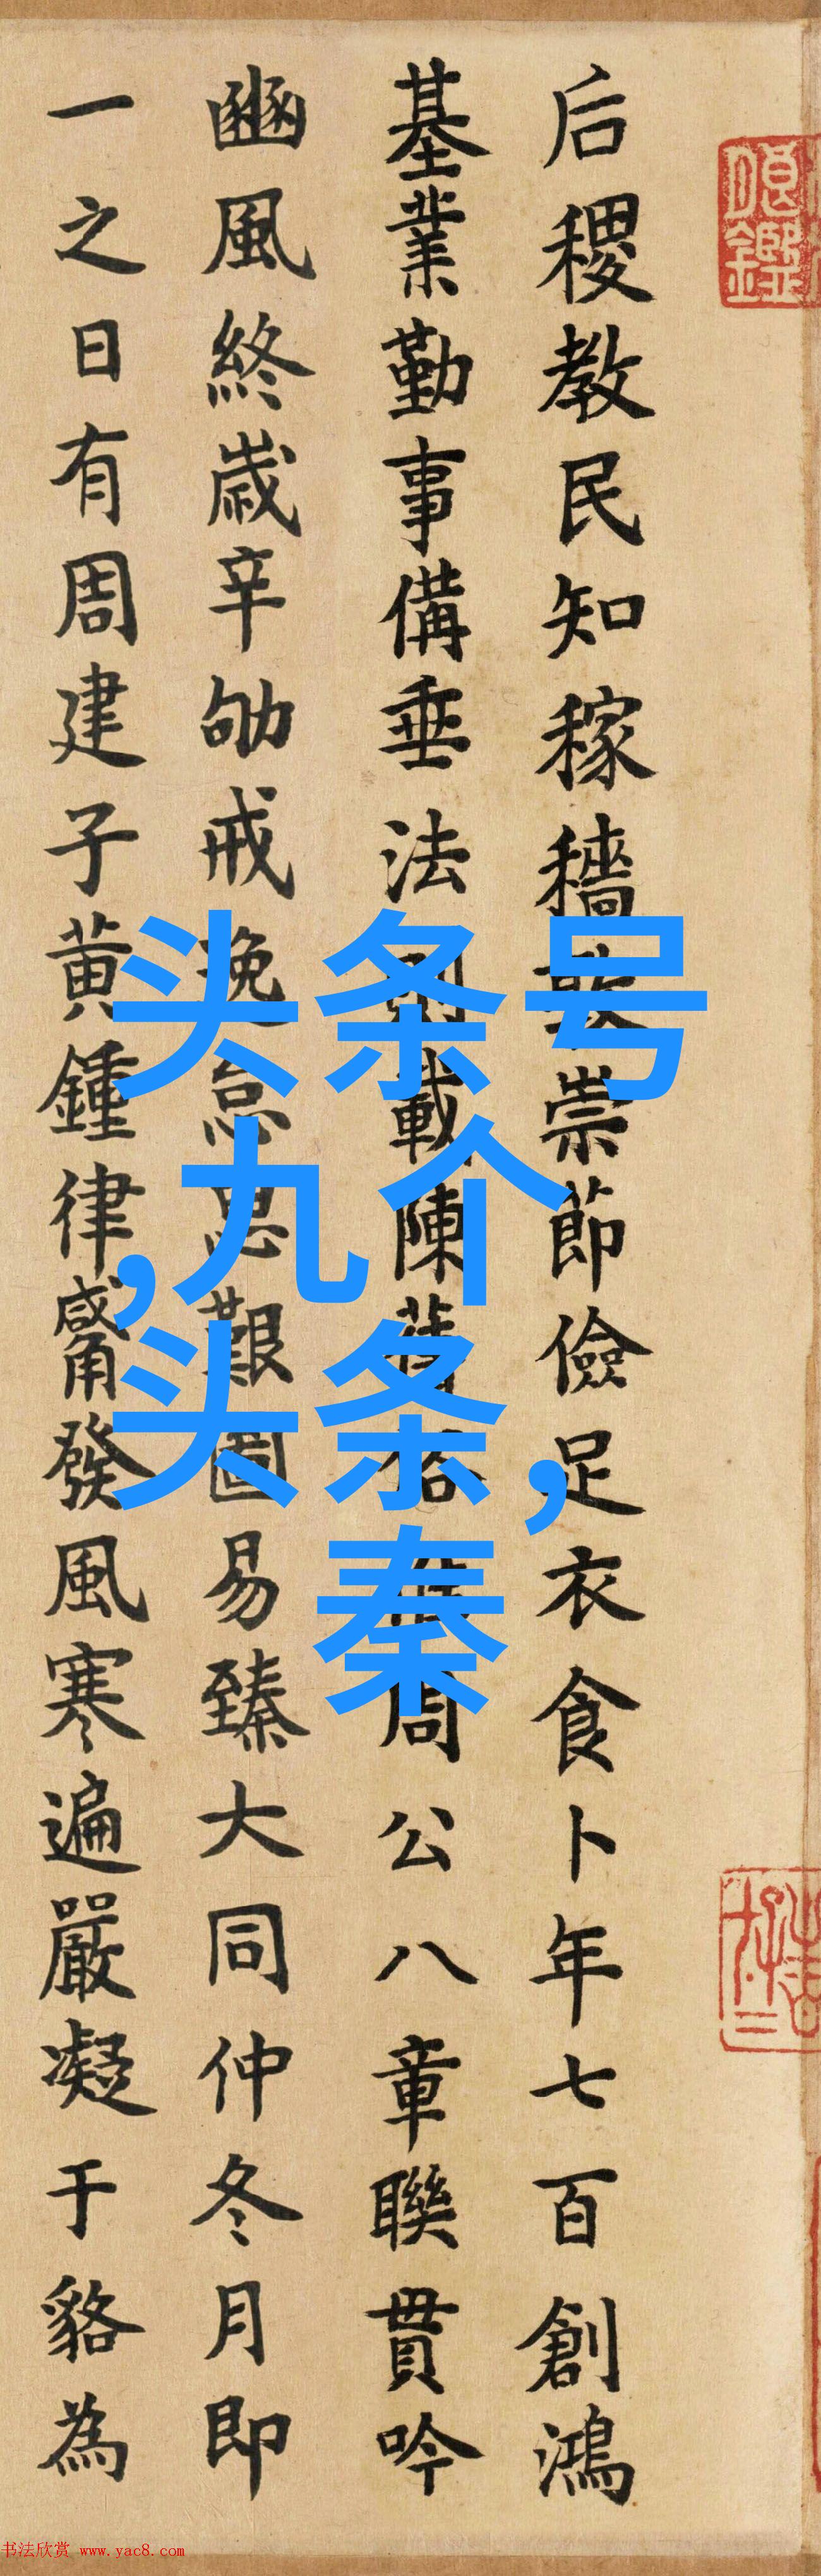 后稷教民知稼穡崇節儉足衣食卜年七百創鴻
基業勤事備垂法載陳周公八章聯貫吟
豳風終歲辛劬戒逸怠思艱圖易臻大同仲冬月即
一之日有周建子黃鍾律觱發風寒遍嚴凝于貉為
头条号
,九个
头条,
秦
书法欣赏 www.yac8.com